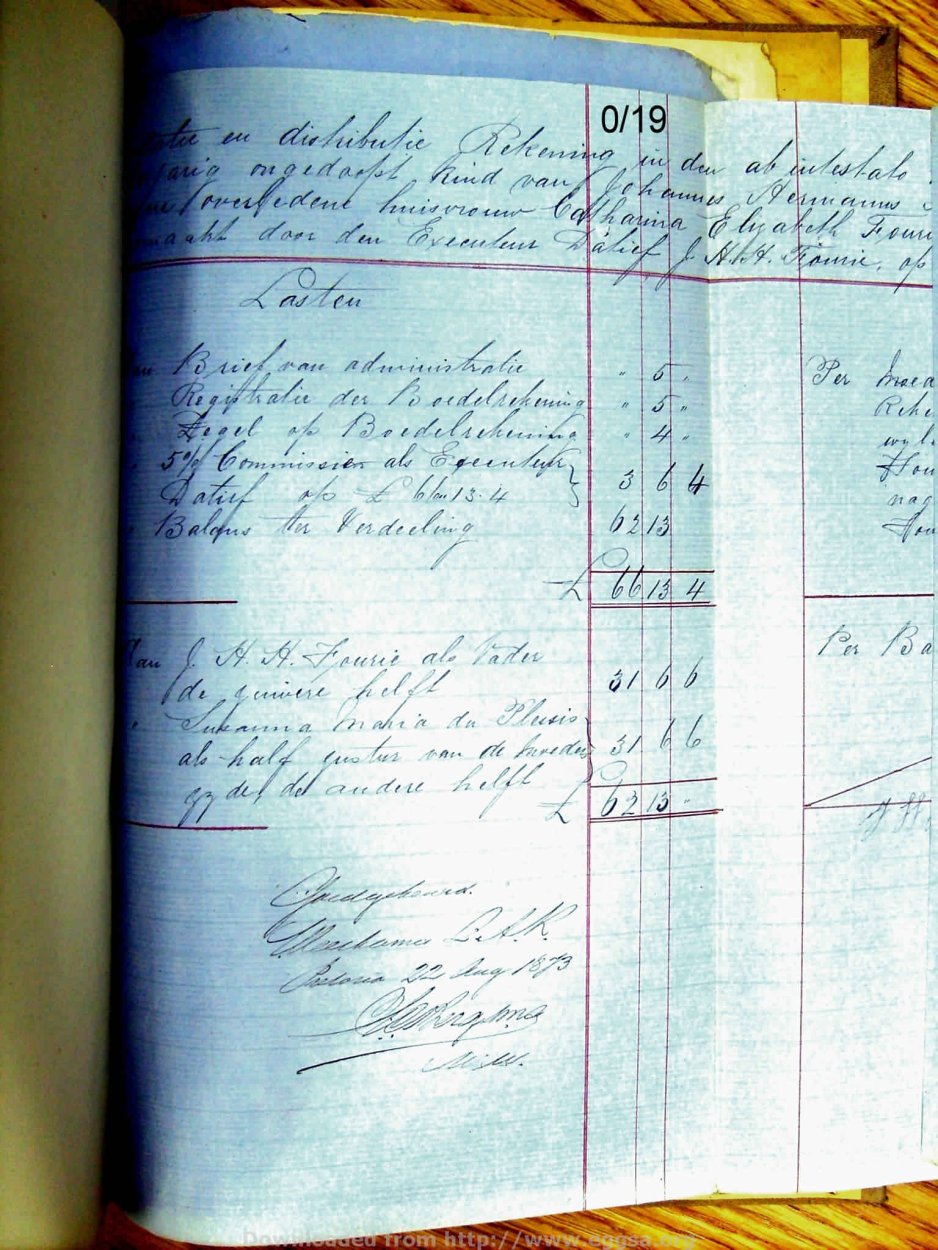 0/19
en distributie Rekening in den ab intestato
jarig ongedoopt kind van Johannes Hermanus
overledene huisvrouw Catharina Elizabeth Fouri
maakt door den Executeur Datief J. H. H. Fourie, op
Lasten
Brief van administratie " 5 "
Registratie der Boedelrekening " 5 "
Zegel op Boedelrekening " 4 "
5% Commissien als Executeur
Datief op £ 66.13.4 3 6 4
Balans ter Verdeeling 62 13
£ 66 13 4
Aan J. H. H. Fourie als Vader
de zuivere helft 31 6 6
Susanna Maria du Plessis
als half zuster van de moeders 31 6 6
zyde, de andere helft
£ 62 13 "
Goedgekeurd.
Weeskamer Z.A.R.
Pretoria 22 Aug 1873
Per
Rehe
nag
Per Ba
Downloaded from http://www.eggsa.org